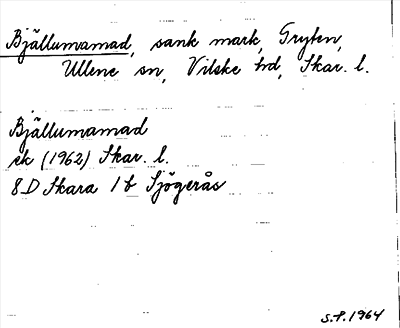 Bjällumamad, sank mark, Gryten,
Ullene sn, Vilske hd, Skar. l.
Bjällumamad
ek (1962) Skar. l.
8D Skara 1b Sjögerås
S.P. 1964